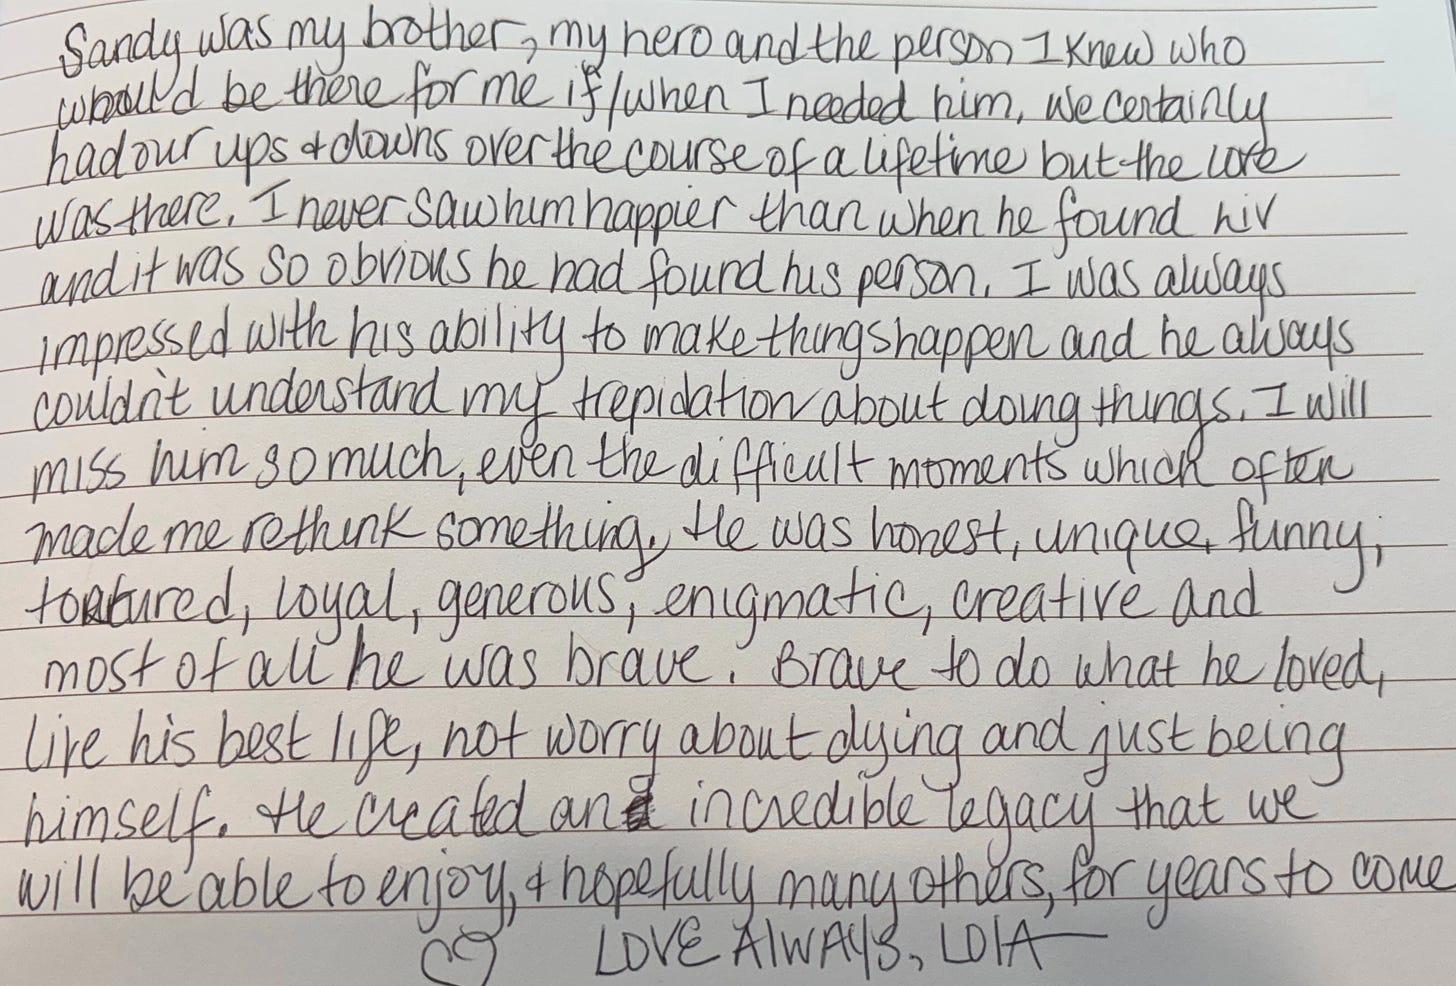 Sandy was my brother, my hero and the person I knew who
would be there for me if/when I needed him. We certainly
had our ups & downs over the course of a lifetime but the love
was there. I never saw him happier than when he found Liv
and it was so obvious he had found his person. I was always
impressed with his ability to make things happen and he always
couldn't understand my trepidation about doing things. I will
miss him so much, even the difficult moments which often
made me rethink something. He was honest, unique, funny,
tortured, loyal, generous, enigmatic, creative and
most of all he was brave. Brave to do what he loved,
live his best life, not worry about dying and just being
himself. He created an incredible legacy that we
will be able to enjoy, & hopefully many others, for years to come
♡ LOVE ALWAYS,